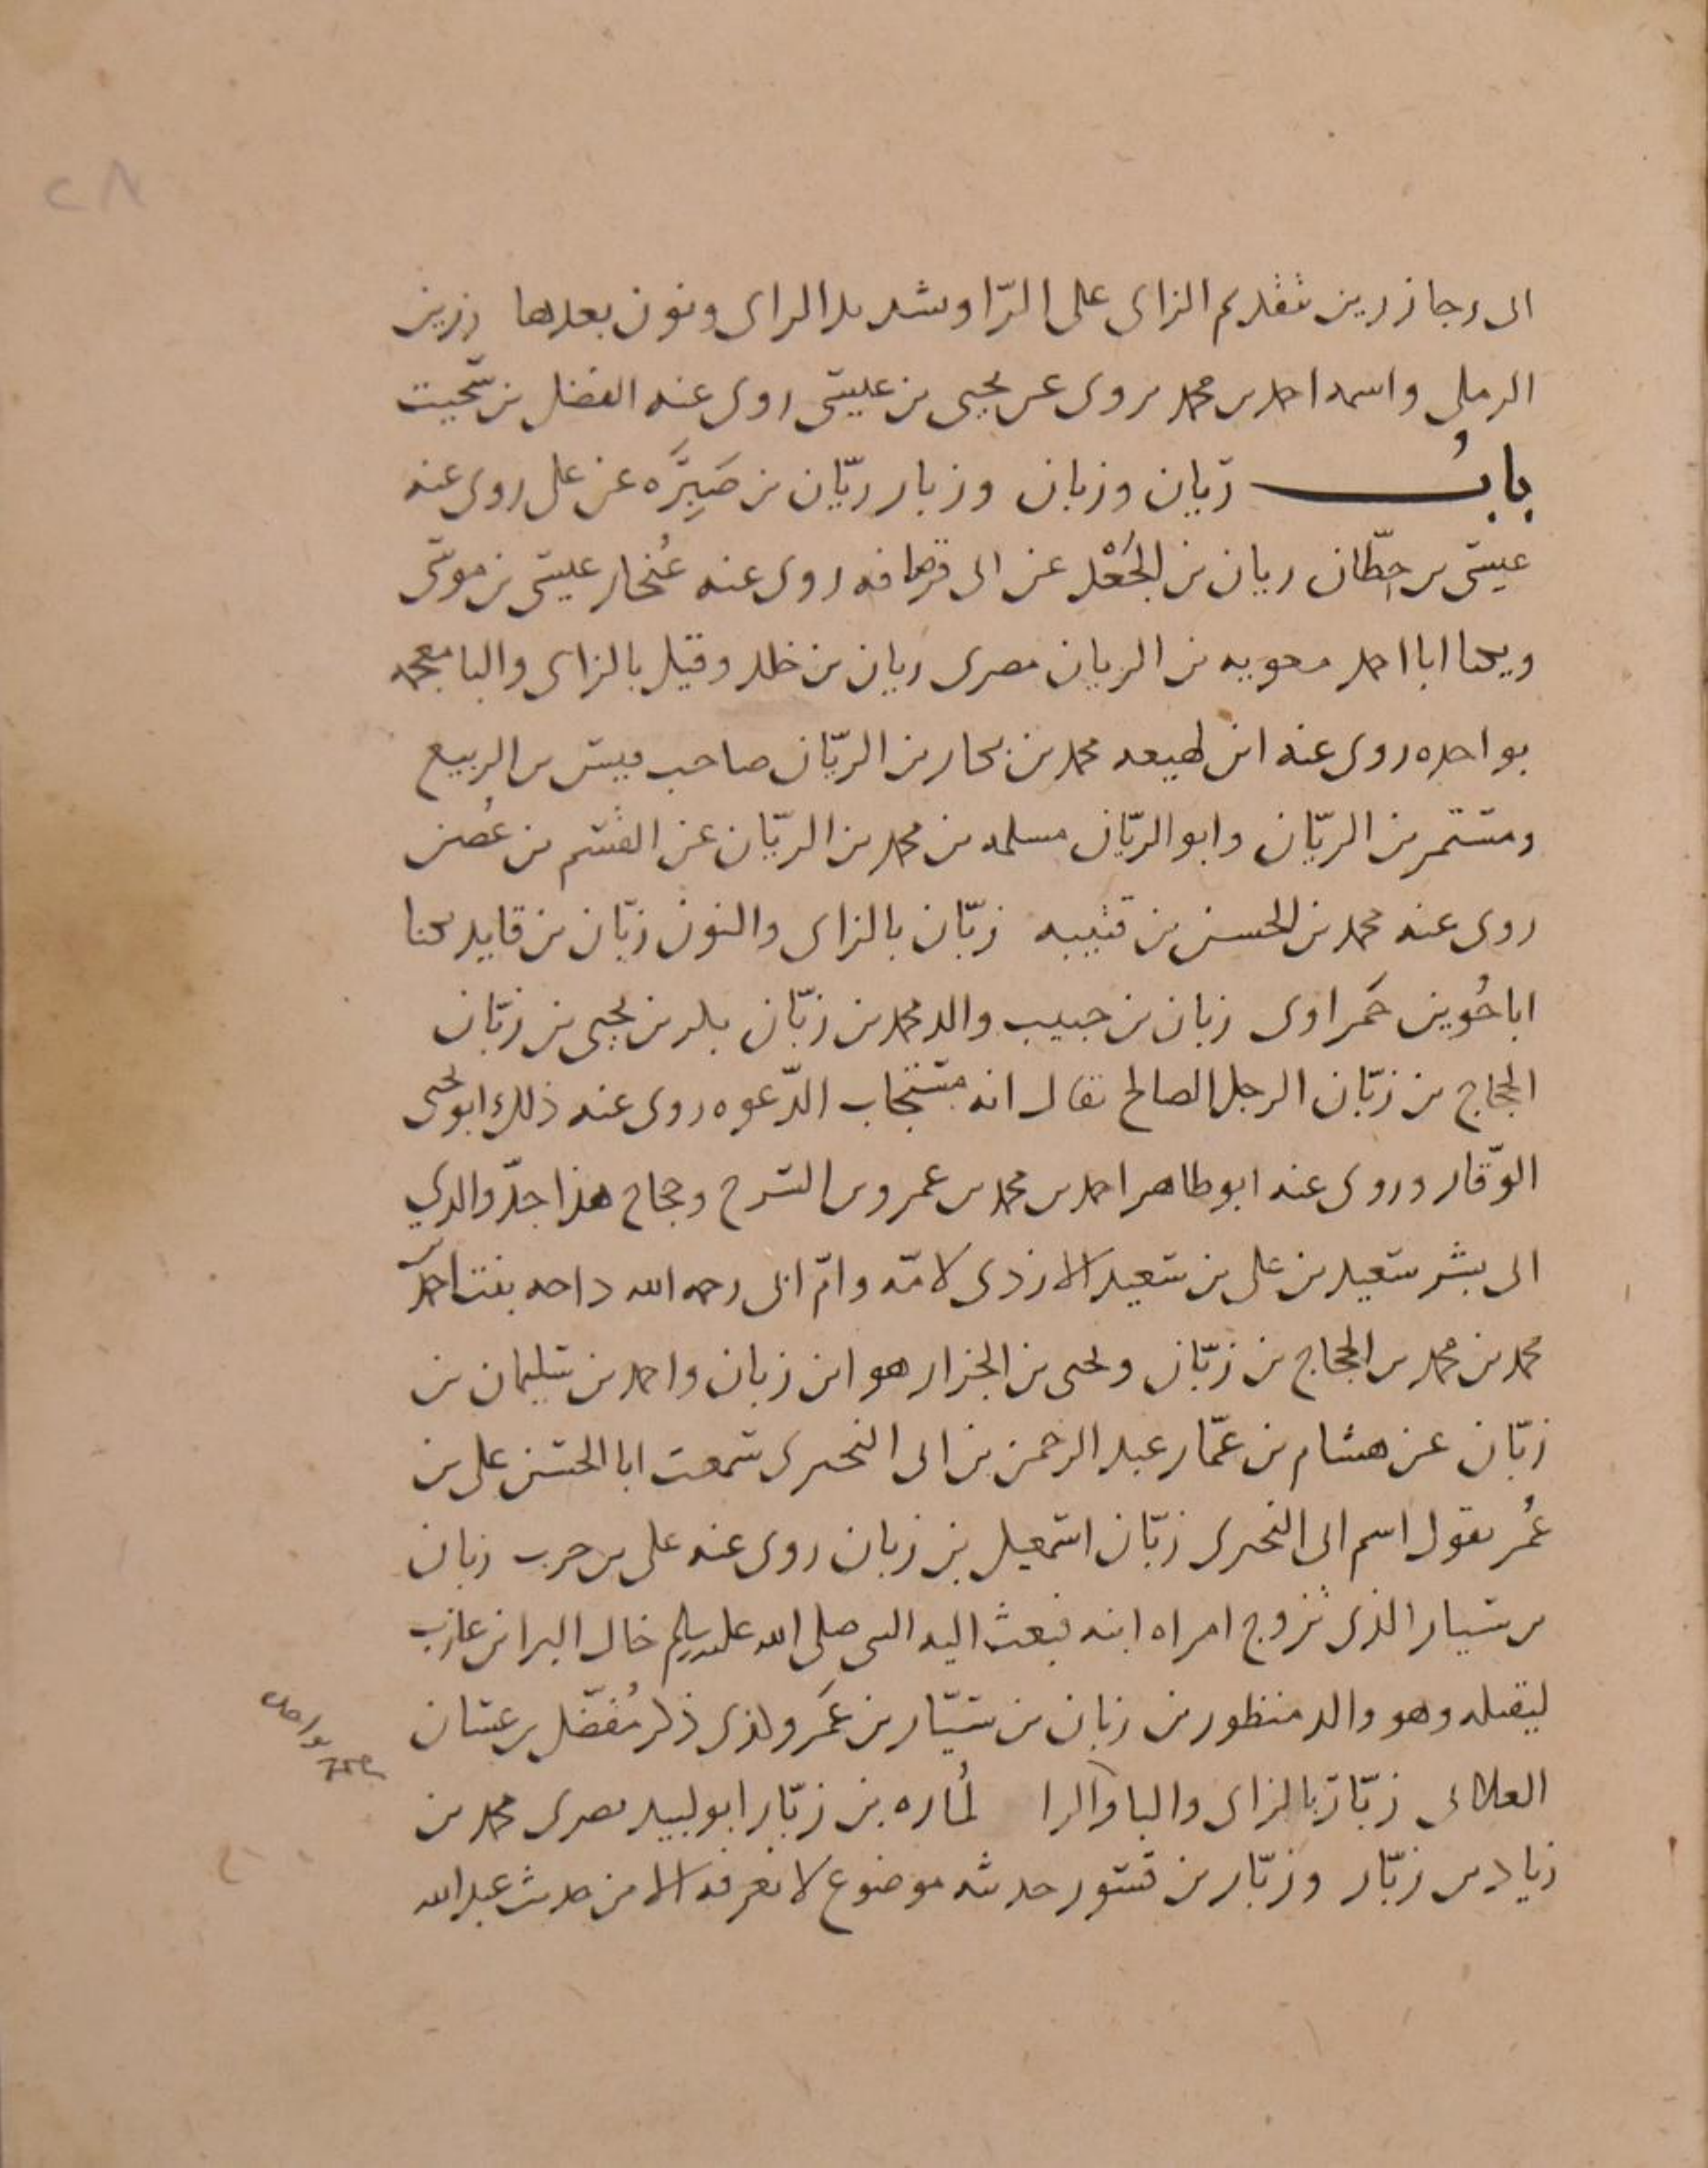 ٢٨
ابى رجا زرين بتقديم الزاى على الرّا وتشديد الراى ونون بعدها زرين
الرملى واسمه احمد بن محمد يروى عن يحيى بن عيسى روى عنه الفضل بن سخيت
بابُ ريان وزبان وزبار ريّان بن صَبِرَه عن على روى عنه
عيسى بن حِطّان ريان بن الجَعْد عن ابى قرصافه روى عنه غُنجار عيسى بن موسى
ويكنا ابا احمد معويه بن الريان مصرى ريان بن خلد وقيل بالزاى والبا معجمه
بواحده روى عنه ابن لهيعه محمد بن بكار بن الريّان صاحب قيس بن الربيع
ومستمر بن الريّان وابو الريّان مسلمه بن محمد بن الريّان عن القسم بن غُصن
روى عنه محمد بن الحسن بن قتيبه زبّان بالزاى والنون زبّان بن قايد يكنا
ابا جُوين حَمراوى زبان بن حبيب والد محمد بن زبّان بلد بن يحيى بن زبّان
الحجاج بن زبّان الرجل الصالح يقال انه مستجاب الدّعوه روى عنه ذلك ابو يحيى
الوّقار وروى عنه ابو طاهر احمد بن محمد بن عمرو بن السرح وحجاج هذا جدّ والدي
ابى بشر سعيد بن على بن سعيد الازدى لامّه وامّ ابى رحمه الله بنت احمد بن
محمد بن محمد بن الحجاج بن زبّان ويحيى بن الجزار هو ابن زبان واحمد بن سليمان بن
زبّان عن هشام بن عمّار عبد الرحمن بن ابى البحترى سمعت ابا الحسن على بن
عُمر يقول اسم ابى البحترى زبّان اسمعيل بن زبان روى عنه على بن حرب زبان
بن سيار الذى تزوج امراه ابيه فبعث اليه النبى صلى الله عليه وسلم خال البرا بن عازب
ليقتله وهو والد منظور بن زبان بن سيّار بن عَمرو الذى ذكر مُفضّل بن غسان
الغلابى زبّار بالزاى والبا والرا لُمازه بن زبّار ابو لبيد بصرى محمد بن
زياد بن زبّار وزبّار بن قسور حديثه موضوع لا نعرفه الا من حديث عبد الله